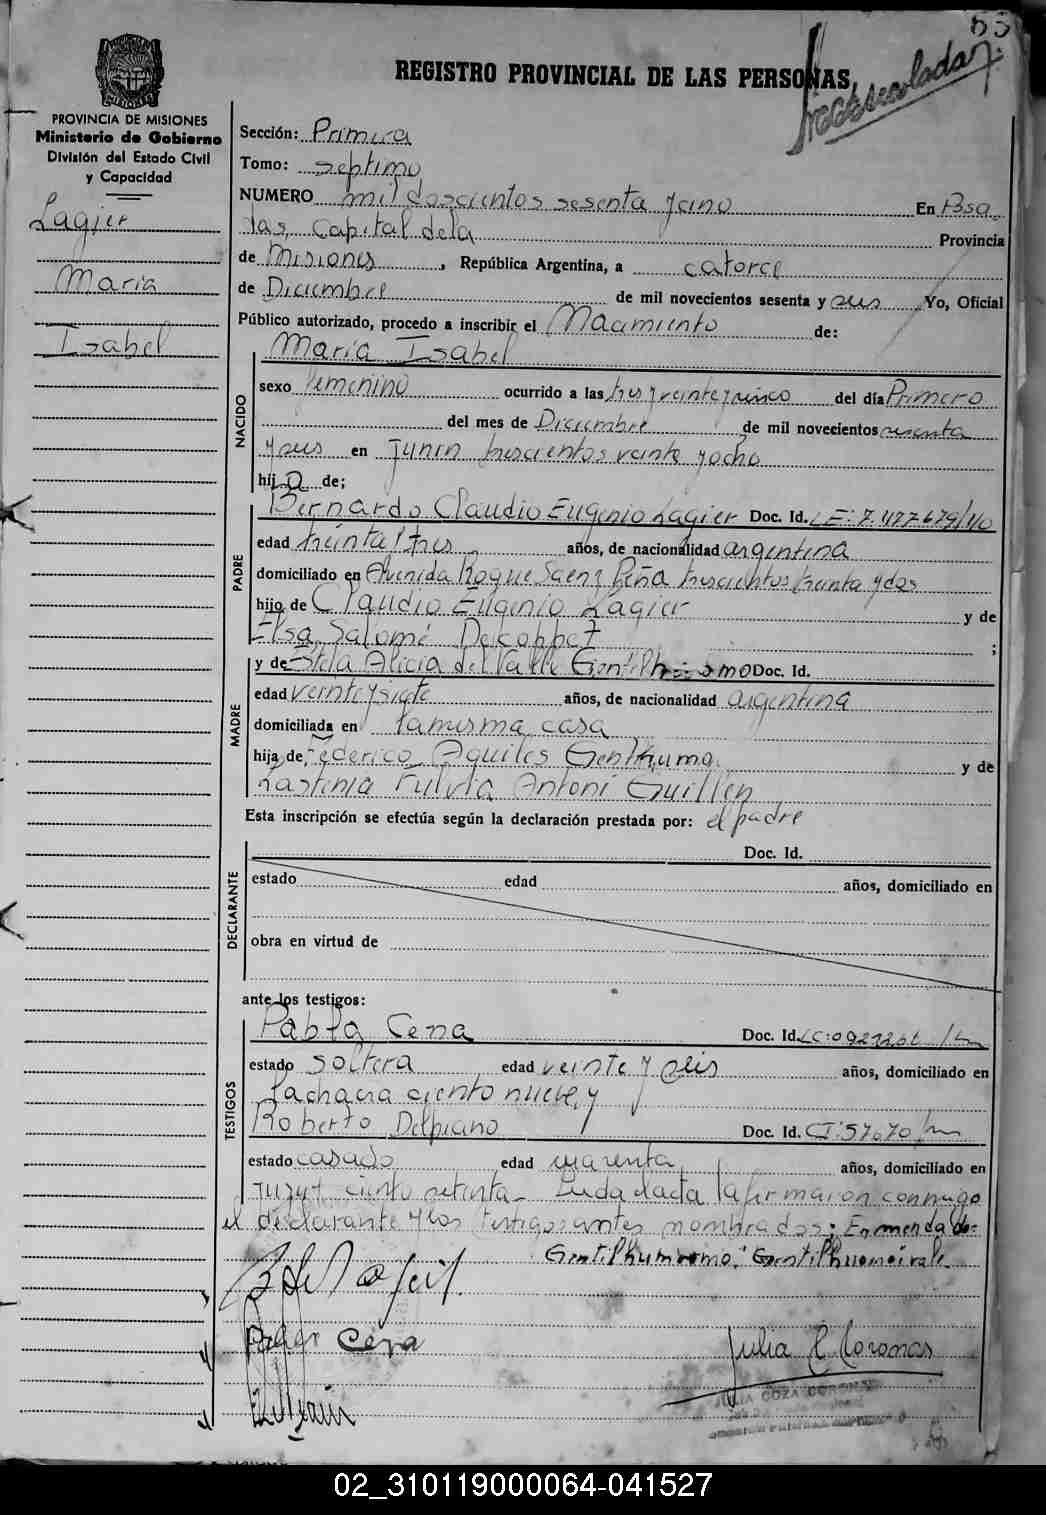 REGISTRO PROVINCIAL DE LAS PERSONAS
PROVINCIA DE MISIONES
Ministerio de Gobierno
División del Estado Civil
y Capacidad
Lagier
María
Isabel
Sección: Primera
Tomo: septimo
NUMERO mil doscientos sesenta y cino En Psa
das, Capital dela Provincia
de Misiones, República Argentina, a catorce
de Diciembre de mil novecientos sesenta y seis Yo, Oficial
Público autorizado, procedo a inscribir el Nacimiento de:
María Isabel
NACIDO
sexo femenino ocurrido a las tres y veinte y cinco del día Primero
del mes de Diciembre de mil novecientos sesenta
y seis en Junín trescientos veinte y ocho
hij a de;
PADRE
Bernardo Claudio Eugenio Lagier Doc. Id. LE: 7.477679/40
edad treinta y tres años, de nacionalidad argentina
domiciliado en Avenida Roque Saenz Peña trescientos treinta y dos
hijo de Claudio Eugenio Lagier y de
Elsa Salomé Decoppet ;
MADRE
y de Stela Alicia del Valle Gentilh omo Doc. Id.
edad veinte y siete años, de nacionalidad argentina
domiciliada en la misma casa
hija de Federico Aquiles y de
Lastenia Fulvia Antoni Guillen
Esta inscripción se efectúa según la declaración prestada por: el padre
DECLARANTE
Doc. Id.
estado edad años, domiciliado en
obra en virtud de
ante los testigos:
TESTIGOS
Pabla Cena Doc. Id. LC:
estado soltera edad veinte y seis años, domiciliado en
la chacra ciento nueve, y
Roberto Delpiano Doc. Id. CI: 57.070
estado casado edad cuarenta años, domiciliado en
Jujuy ciento setenta- Leida el acta la firmaron conmigo
el declarante y los testigos antes nombrados: Enmendado:
vale
Cena
Julia C. Coronas
JULIA COZA CORONAS
02_310119000064-041527